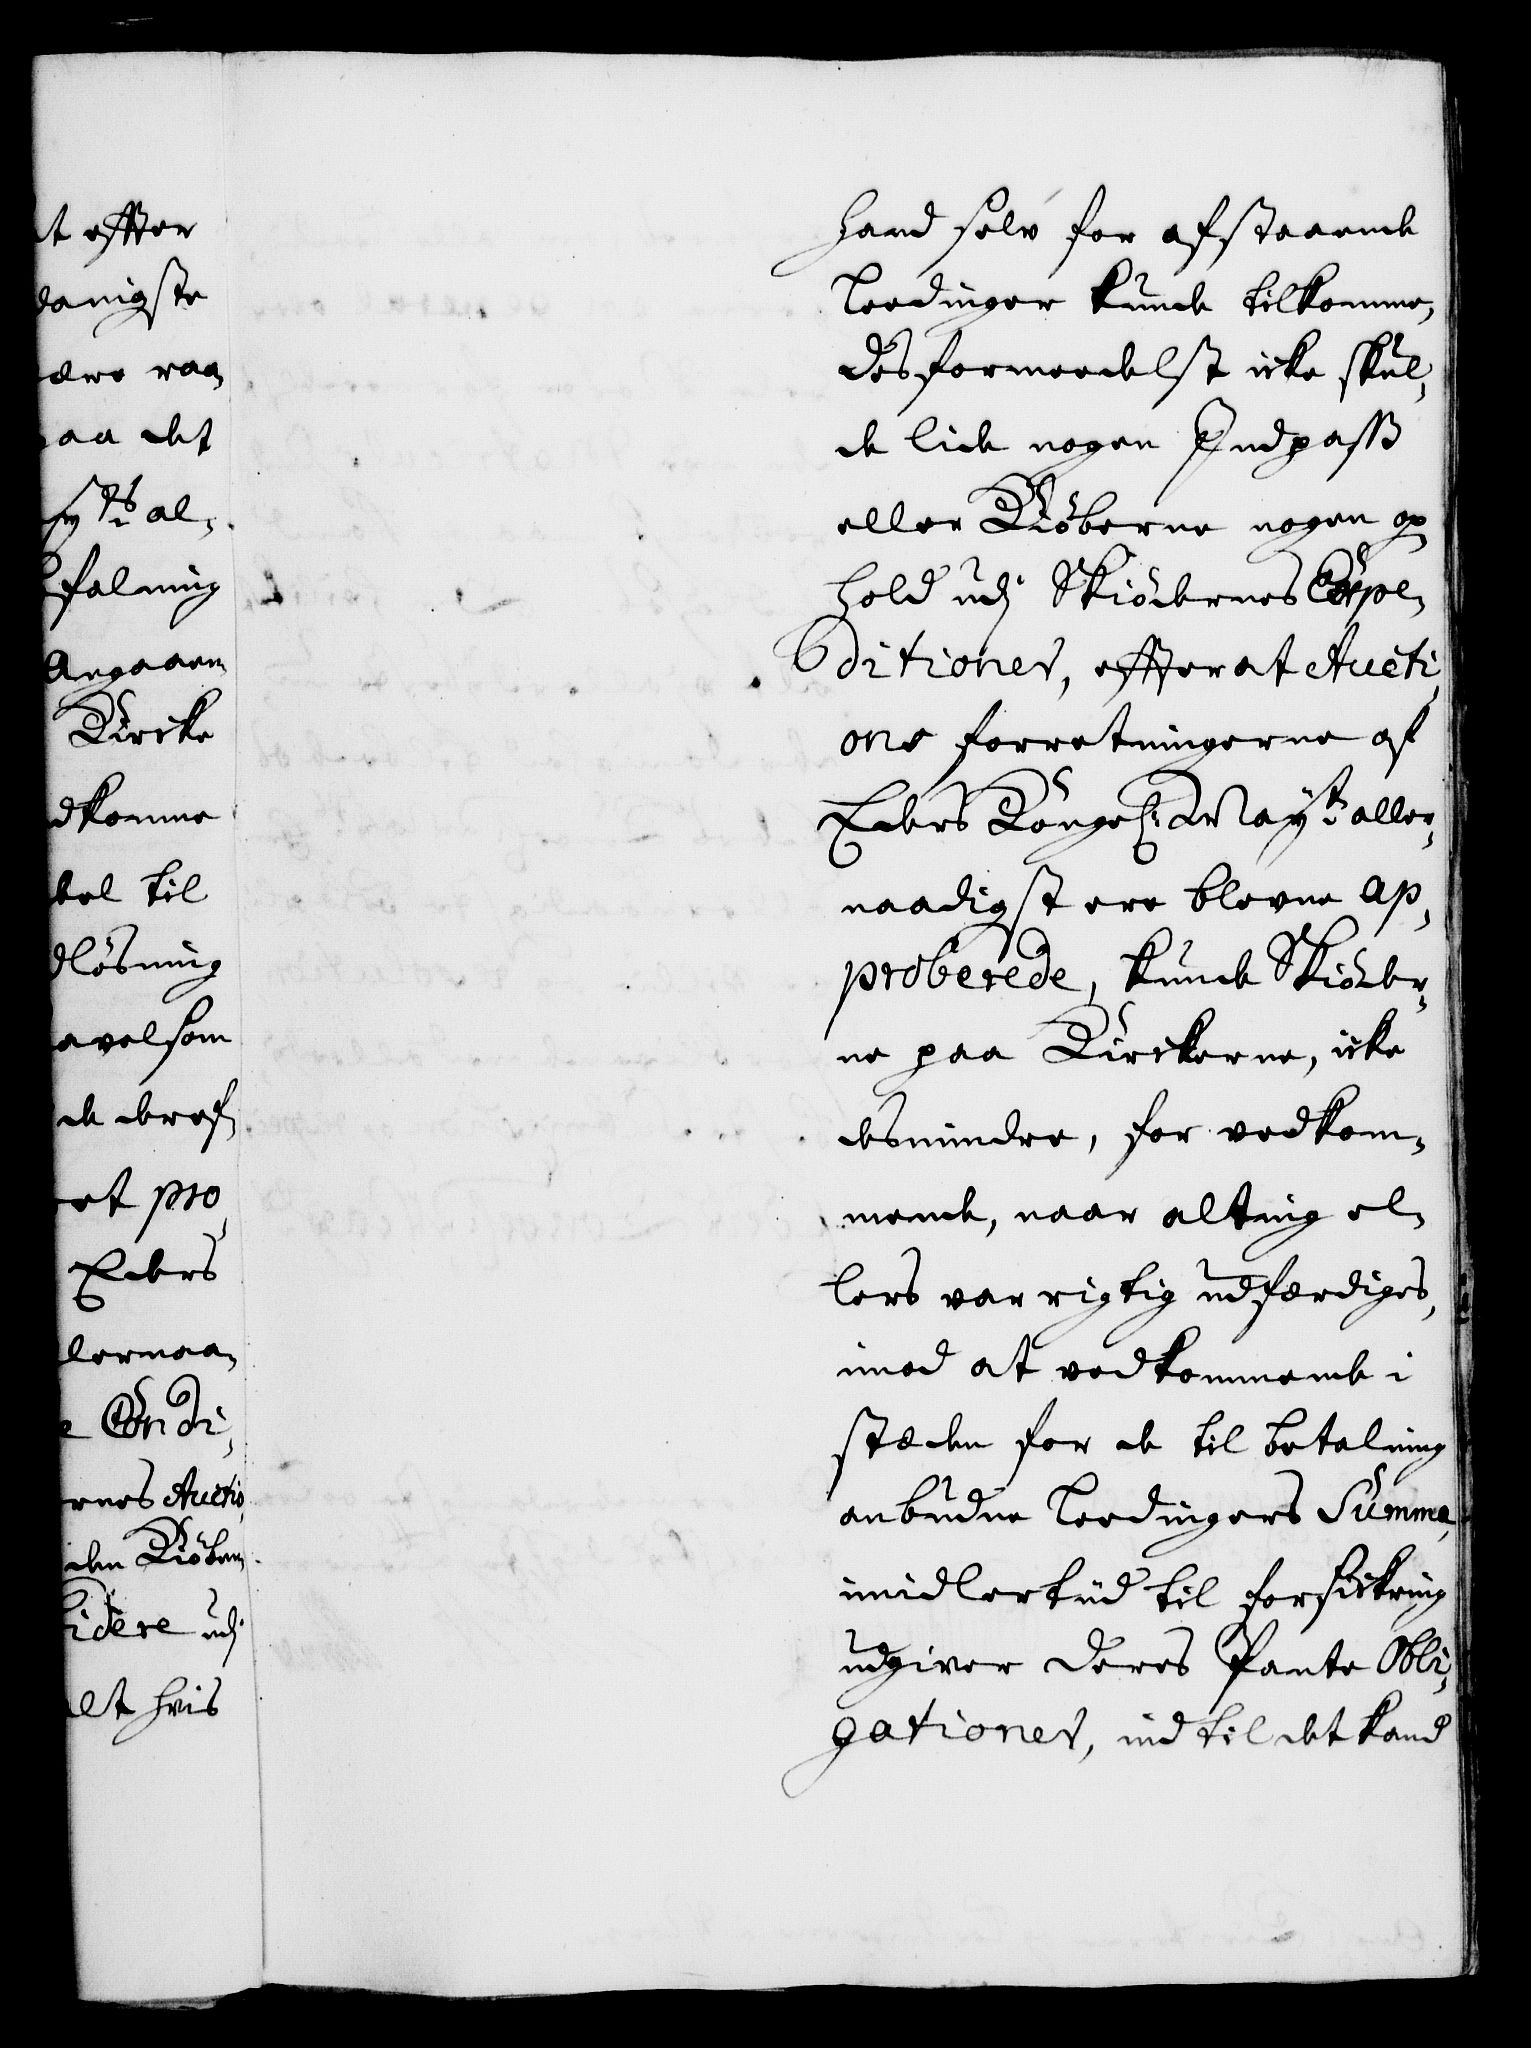 t effter
danigste
ære raa„
aa det
ytz al„
falning
Angaaen„
Kircke
dkomme
del til
dløsning
avelsom
de deref„
et pro„
Eders
lernaa„
e Condi„
rnes Auctio„
den Kiøben„
idere udj
lt hvis
hand selv for afstaaende
Leedinger kunde tilkomme,
desformeedelst icke skul„
de lide nogen Indpass
eller Kiøberne nogen op„
hold udj Skiødernes Expe„
ditioner, effter at Aucti„
ons forretningerne af
Eders Kongel: Mayt: aller„
naadigst ere blevne ap„
proberede, kunde Skiøder„
ne paa Kirckerne, icke
desmindre, for vedkom„
mende, naar alting el„
lers var rigtig udfærdiges,
imod at vedkommende i
stæden for de til betalning
anbudne Leedingers Summa,
imidlertiid til forsickring
udgiver deres Pante Obli„
gationer, ind til det kand